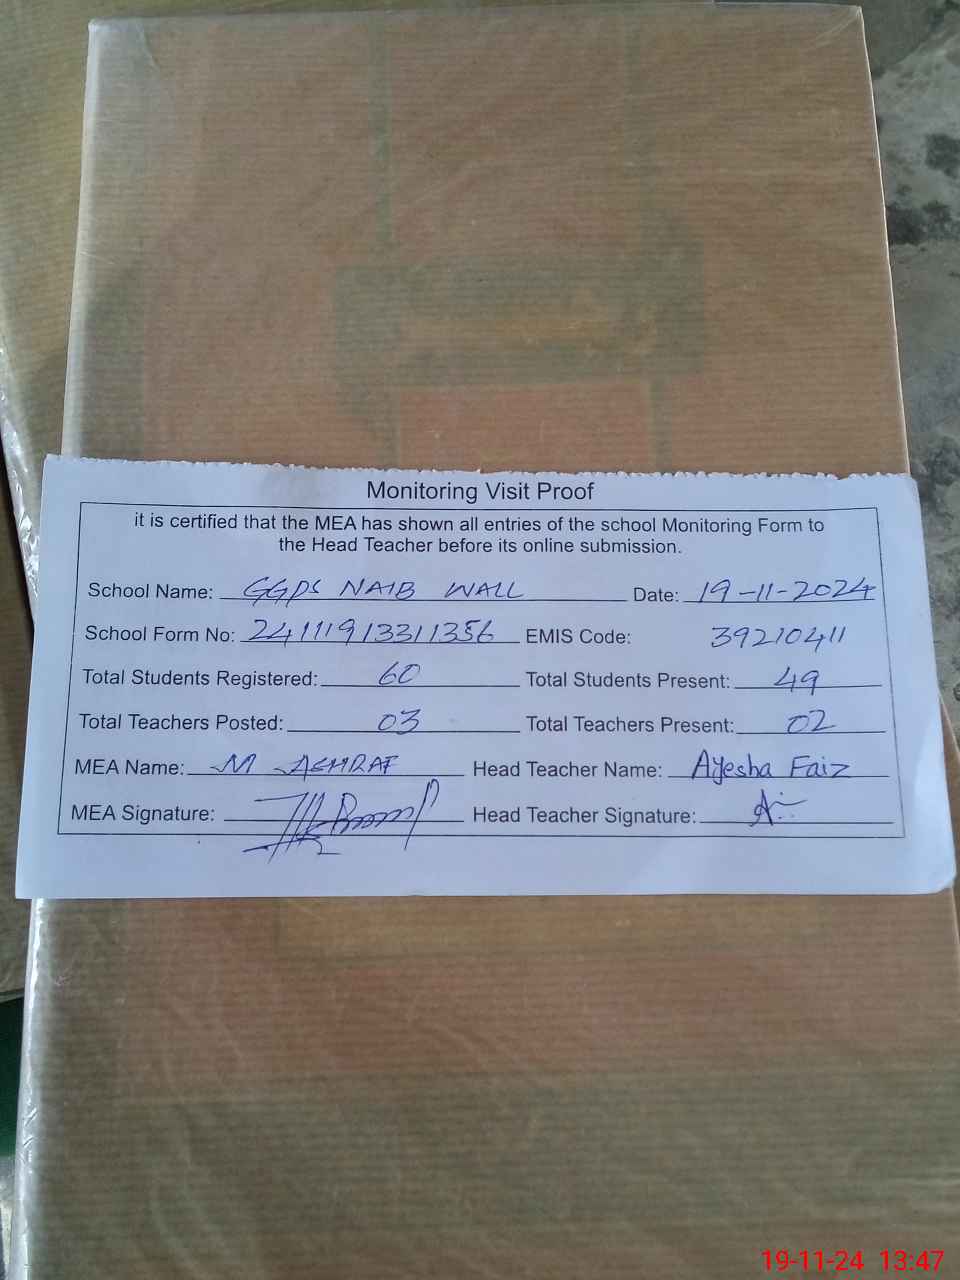 Monitoring Visit Proof
it is certified that the MEA has shown all entries of the school Monitoring Form to
the Head Teacher before its online submission.
School Name: GGPS NAIB WALL Date: 19-11-2024
School Form No: 24111913311356 EMIS Code: 39210411
Total Students Registered: 60 Total Students Present: 49
Total Teachers Posted: 03 Total Teachers Present: 02
MEA Name: M ASHRAF Head Teacher Name: Ayesha Faiz
MEA Signature: Head Teacher Signature:
19-11-24 13:47